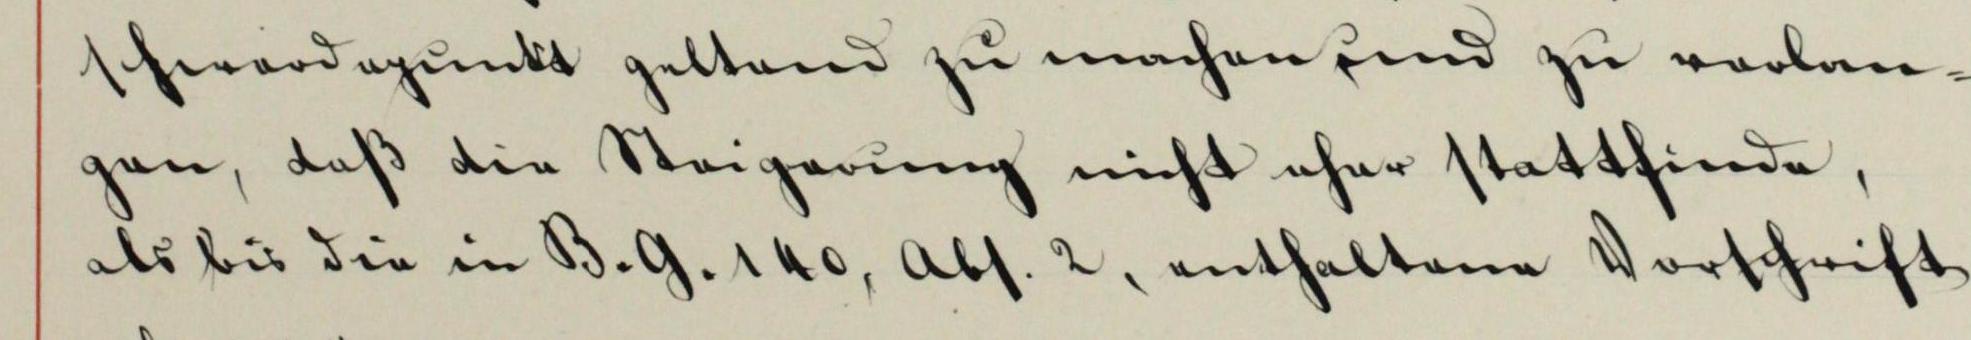 schwerdepunkt geltend zu machen, und zu verlan=
gen, daß die Steigerung nicht eher stattfinde,
als bis die in B. G. 140, Abs. 2, enthaltene Vorschrift